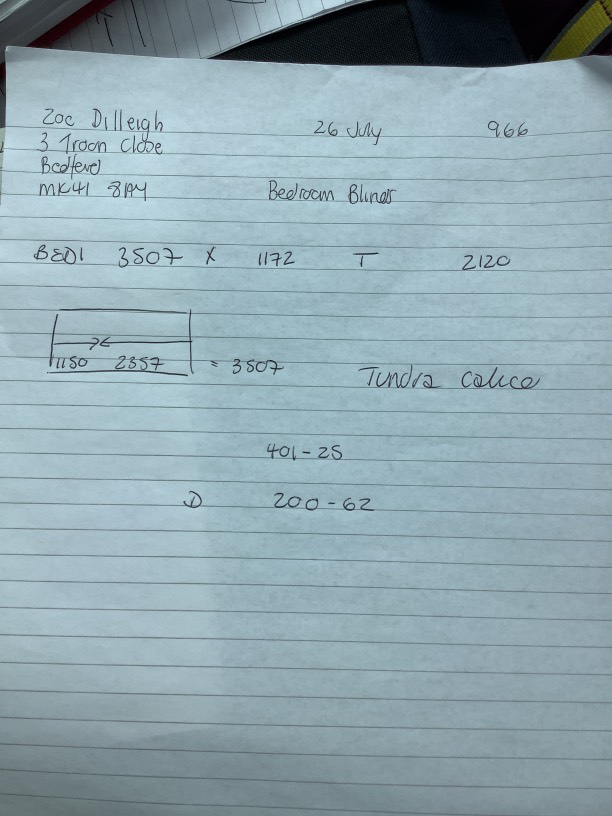 Zoe Dilleigh 26 July 966
3 Troon Close
Bedford
MK41 8AY Bedroom Blinds
BED1 3507 X 1172 T 2120
1150 2357 = 3507
Tundra Calico
401-25
D 200-62